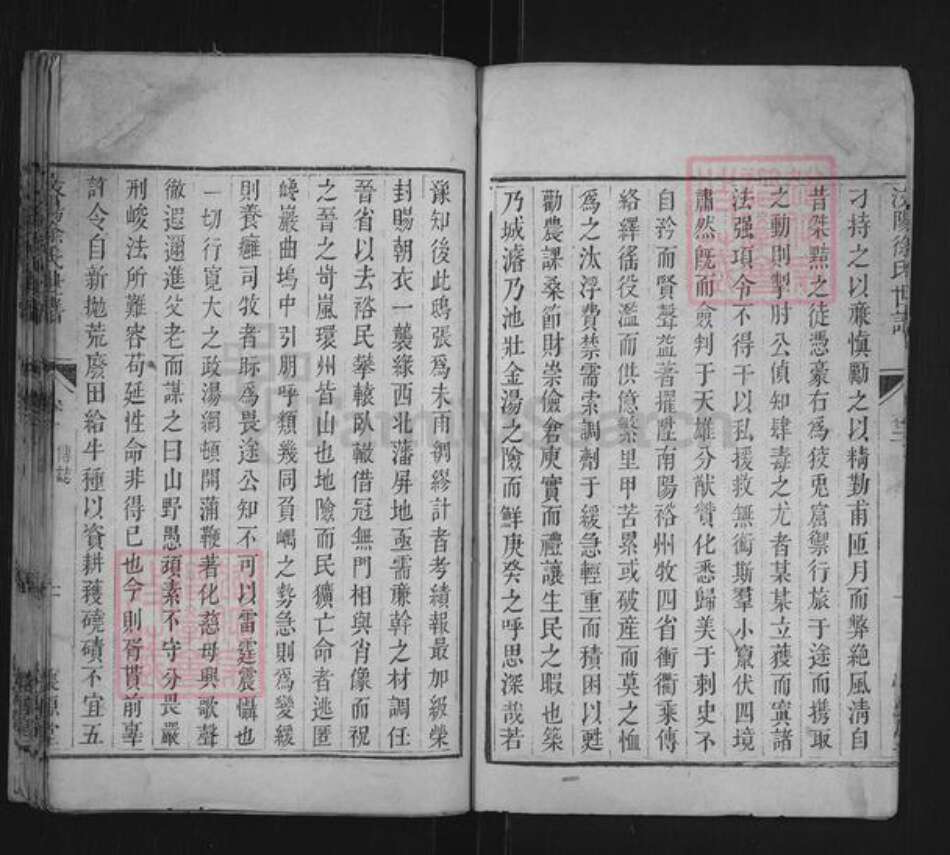 汝陽徐氏世譜
才持之以廉慎勵之以精勤甫匝月而弊絶風清自
昔桀黠之徒憑豪右爲狡兎窟禦行旅于途而攫取
之動則掣肘公偵知肆毒之尤者某某立獲而寘諸
法强項令不得干以私援救無衛斯羣小竄伏四境
肅然旣而僉判于天雄分猷贊化悉歸美于刺史不
自矜而賢聲益著擢陞南陽裕州牧四省衝衢乘傳
絡繹徭役濫而供億繁里甲苦累或破產而莫之恤
爲之汰浮費禁需索調劑于緩急輕重而積困以甦
勸農課桑節財崇儉倉庾實而禮讓生民之暇也築
乃城濬乃池壯金湯之險而鮮庚癸之呼思深哉若
豫知後此鴟張爲未雨綢繆計者考績報最加級榮
封賜朝衣一襲緣西北藩屏地亟需廉幹之材調任
晉省以去裕民攀轅臥轍借冠無門相與肖像而祝
之晉之岢嵐環州皆山也地險而民獷亡命者逃匿
巖曲塢中引朋呼類幾同負嵎之勢急則爲變緩
則養癰司牧者眎爲畏途公知不可以雷霆震懾也
一切行寬大之政湯網頓開蒲鞭著化慈母興歌聲
徹遐邇進父老而謀之曰山野愚頑素不守分畏嚴
刑峻法所難容苟延性命非得已也今則胥貰前辜
許令自新拋荒廢田給牛種以資耕穫磽磧不宜五